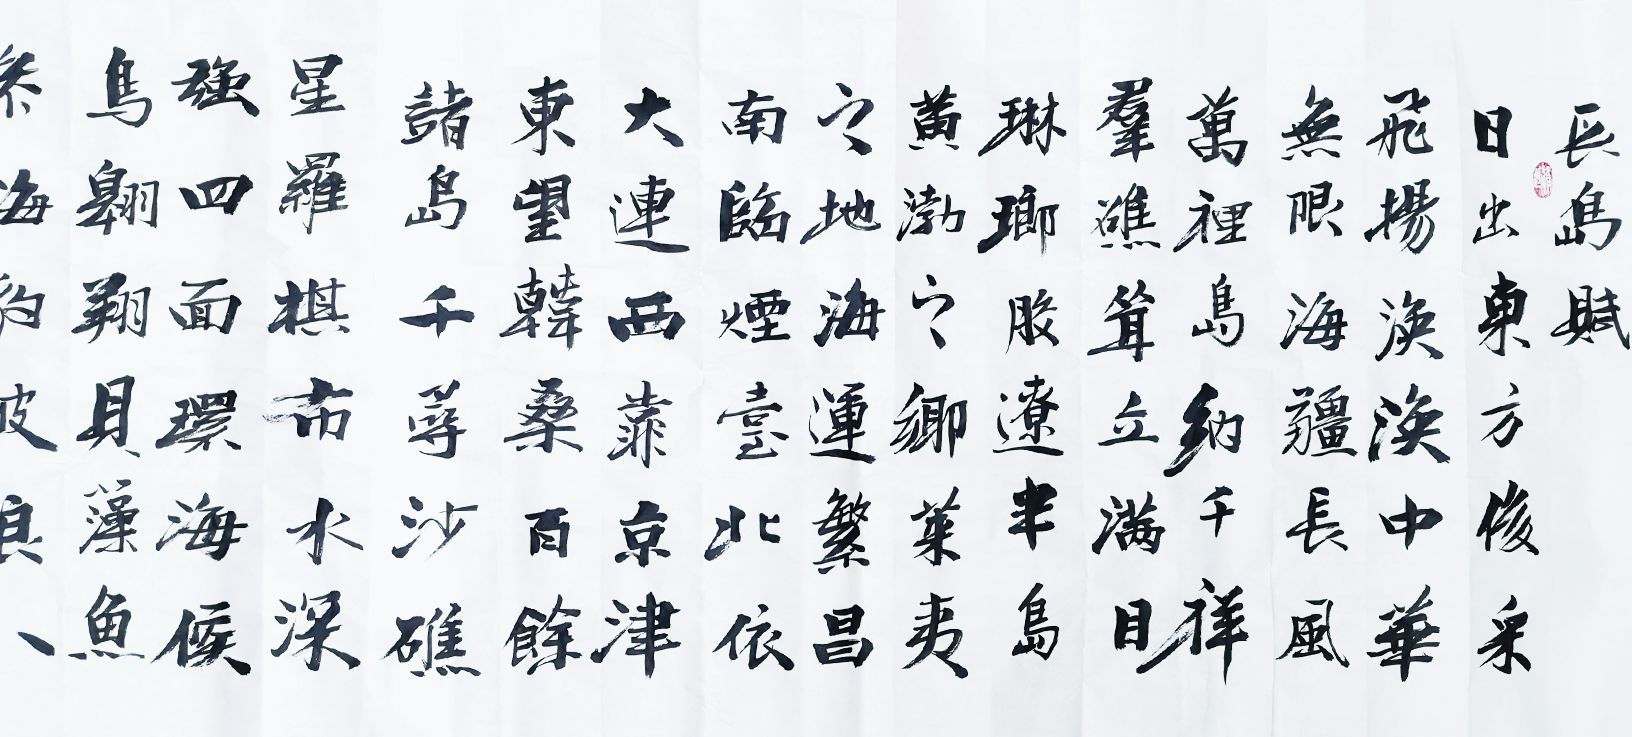 長島賦
日出東方俊采
飛揚渙渙中華
無限海疆長風
萬裡島納千祥
羣礁聳立滿目
琳瑯膠遼半島
黃渤之鄉萊夷
之地海運繁昌
南臨煙臺北依
大連西靠京津
東望韓桑百餘
諸島千尋沙礁
星羅棋布水深
強四面環海候
鳥翱翔貝藻魚
海豹